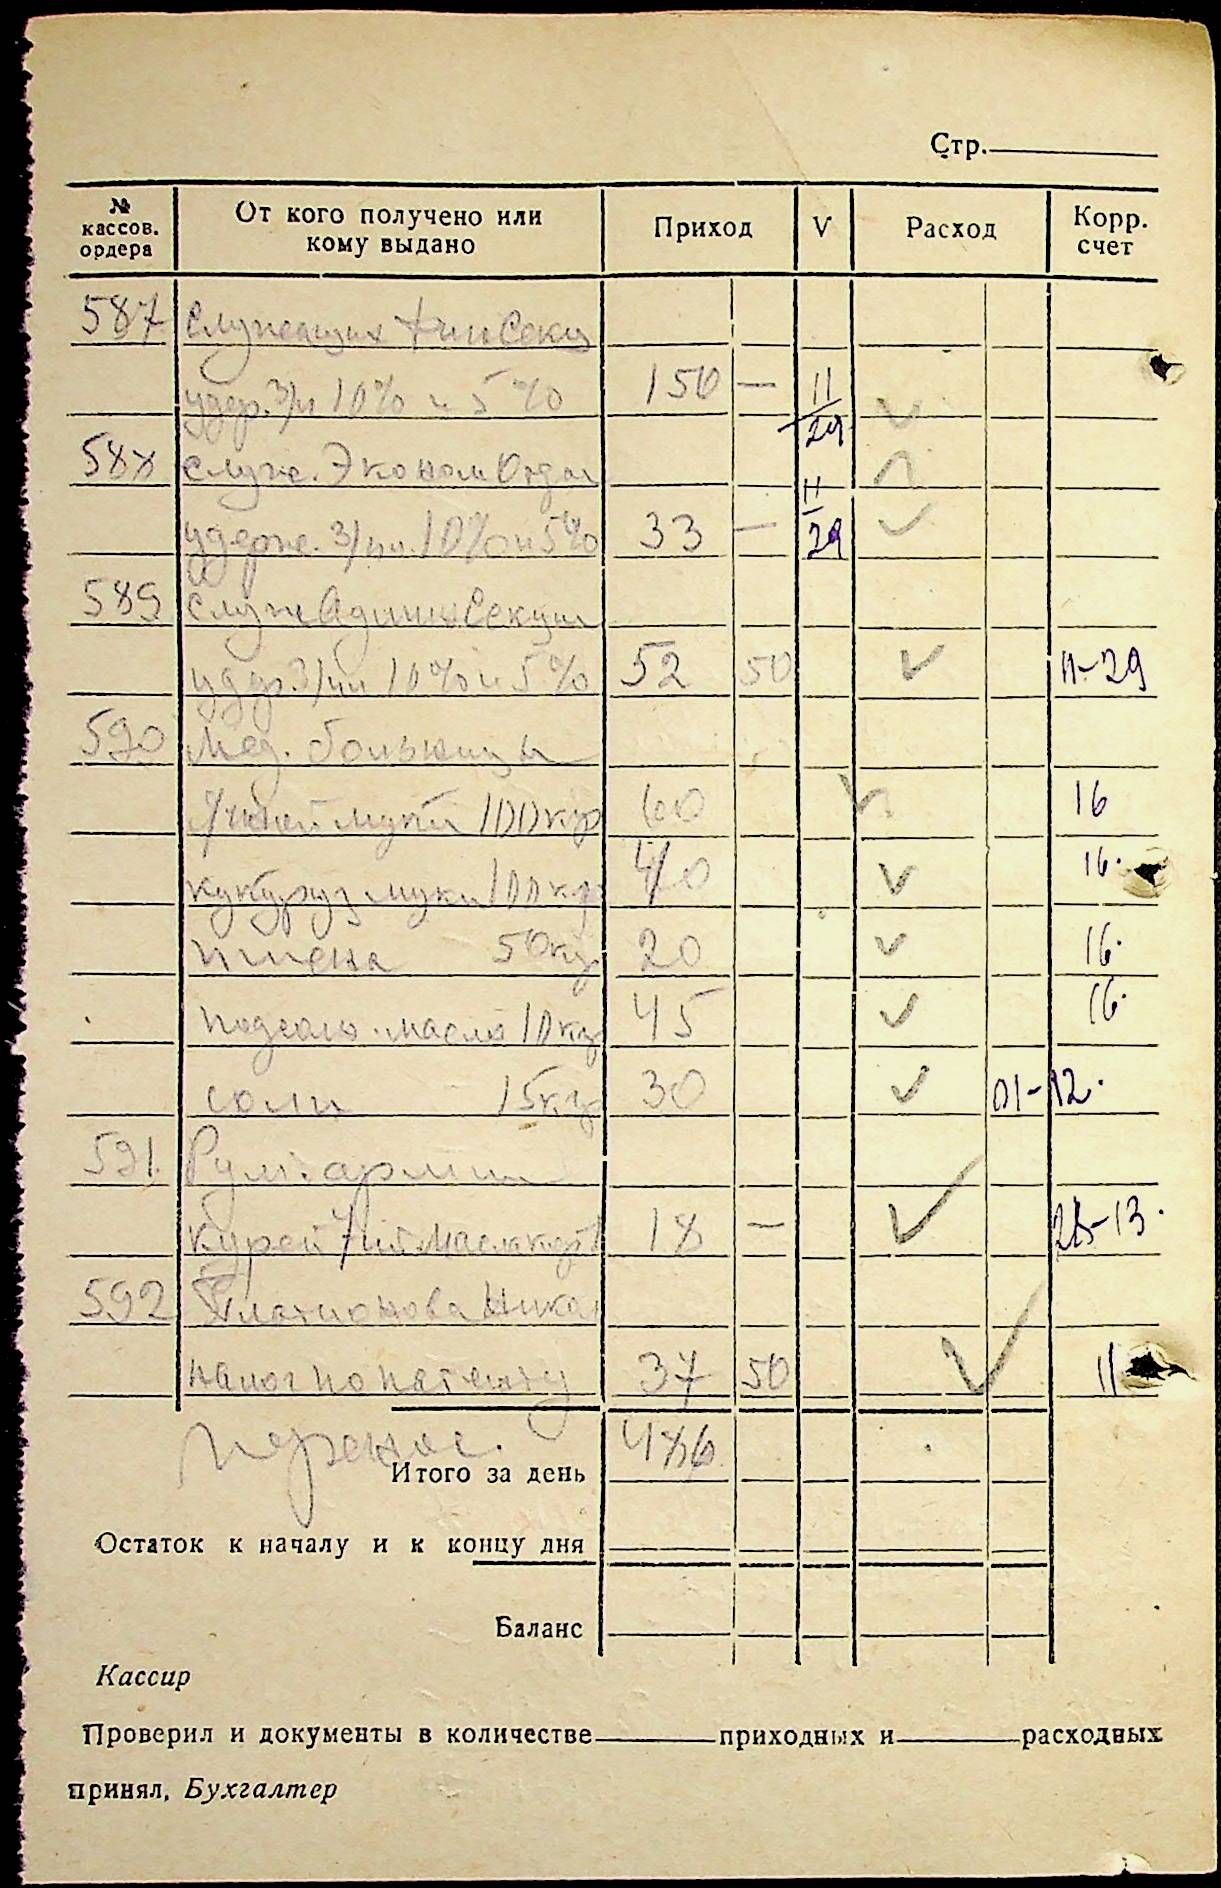 Стр.
№ кассов. ордера От кого получено или кому выдано Приход V Расход Корр. счет
587 Служащих ФинСекц
удер. з/п 10% и 5% 150 — 11/29
588 Служ. Эконом Отдел
удерж. з/пл. 10% и 5% 33 — 11/29
589 Служ Админ Секции
удер. з/пл 10% и 5% 52 50 11-29
590 Мед. больницы
Ячней муки 100 кгр 60 16
кукуруз муки 100 кгр 40 16.
пшена 50 кг 20 16.
подсолн. масло 10 кгр 45 16.
соли 15 кгр 30 01-12.
591. Рум. армии
курей 7 шт 18 — 28-13.
592 Никол
налог по патенту 37 50 11
Перенос. 486
Итого за день
Остаток к началу и к концу дня
Баланс
Кассир
Проверил и документы в количестве приходных и расходных
принял, Бухгалтер